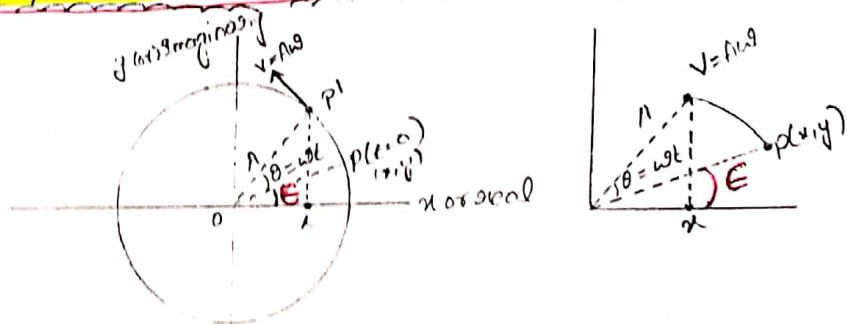 y (or) Imaginary
V = Aω
P'
A
θ = ωt
P(t=0)
(x,y)
ϵ
O
x
x or real
V = Aω
A
θ = ωt
P(x,y)
ϵ
x